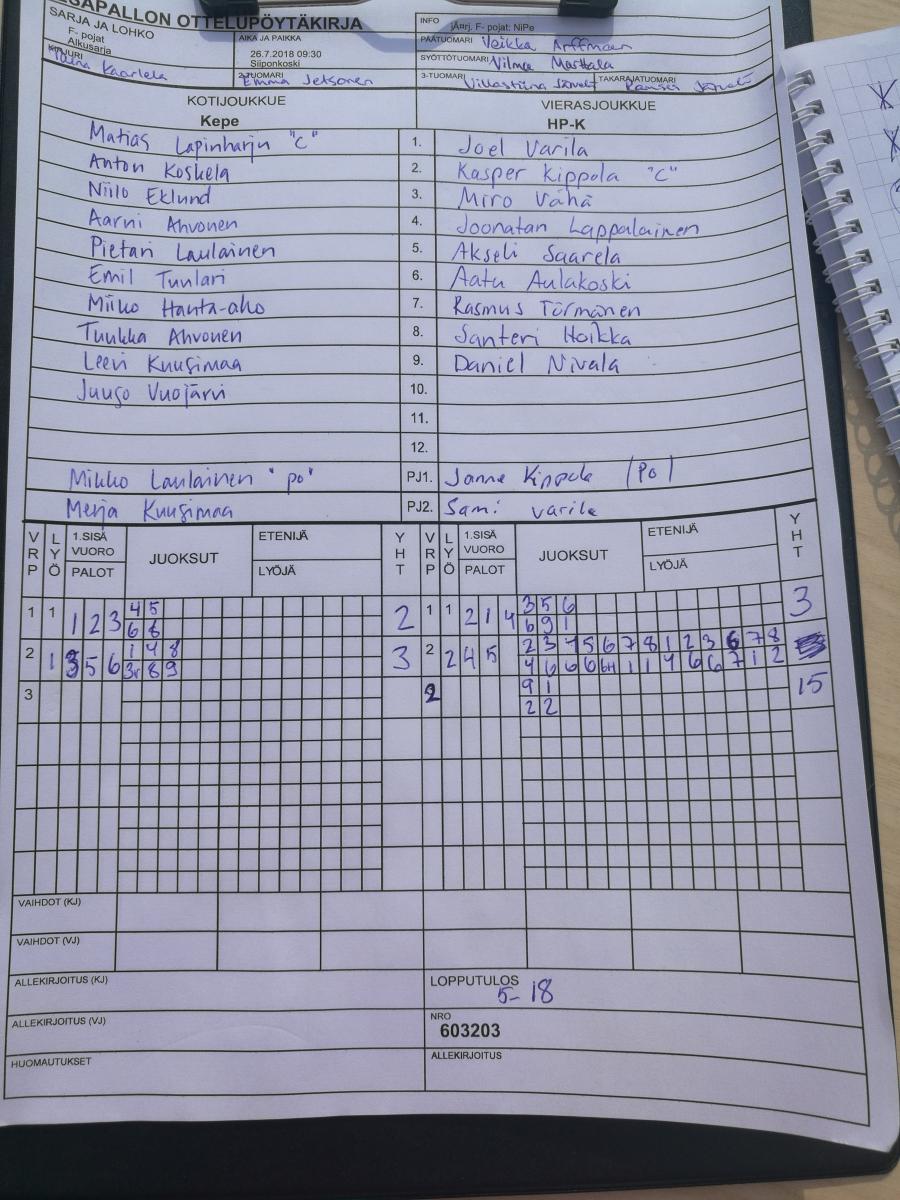 ESÄPALLON OTTELUPÖYTÄKIRJA
SARJA JA LOHKO
F- pojat
Alkusarja
AIKA JA PAIKKA
26.7.2018 09:30
Siiponkoski
INFO
jÄrrj. F- pojat: NiPe
PÄÄTUOMARI Veikka Arffman
SYÖTTÖTUOMARI Vilma Marttala
KIRJURI
Kaarlela
2-TUOMARI
Emma Jetsonen
3-TUOMARI
TAKARAJATUOMARI
KOTIJOUKKUE
Kepe
VIERASJOUKKUE
HP-K
Matias Lapinharju "C" 1. Joel Varila
Anton Koskela 2. Kasper Kippola "C"
Niilo Eklund 3. Miro Vähä
Aarni Ahvonen 4. Joonatan Lappalainen
Pietari Laulainen 5. Akseli Saarela
Emil Tuulari 6. Aatu Aulakoski
Miiko Hauta-aho 7. Rasmus Törmänen
Tuukka Ahvonen 8. Santeri Hoikka
Leevi Kuusimaa 9. Daniel Nivala
Juuso Vuojärvi 10.
11.
12.
Mikko Laulainen "po" PJ1. Janne Kippola (Po)
Merja Kuusimaa PJ2. Sami Varila
VRP LYÖ 1.SISÄ VUORO PALOT JUOKSUT ETENIJÄ LYÖJÄ YHT VRP LYÖ 1.SISÄ VUORO PALOT JUOKSUT ETENIJÄ LYÖJÄ YHT
1 1 1 2 3 4 5 2 1 1 2 1 4 3 5 6 3
6 8 6 9 1
2 1 3 5 6 1 4 8 3 2 2 4 5 2 3 4 5 6 7 8 1 2 3 6 7 8
8 9 4 6 6 6H 1 1 4 6 6 7 1 2
3 2 9 1 15
2 2
VAIHDOT (KJ)
VAIHDOT (VJ)
ALLEKIRJOITUS (KJ)
LOPPUTULOS
5- 18
ALLEKIRJOITUS (VJ)
NRO
603203
HUOMAUTUKSET
ALLEKIRJOITUS